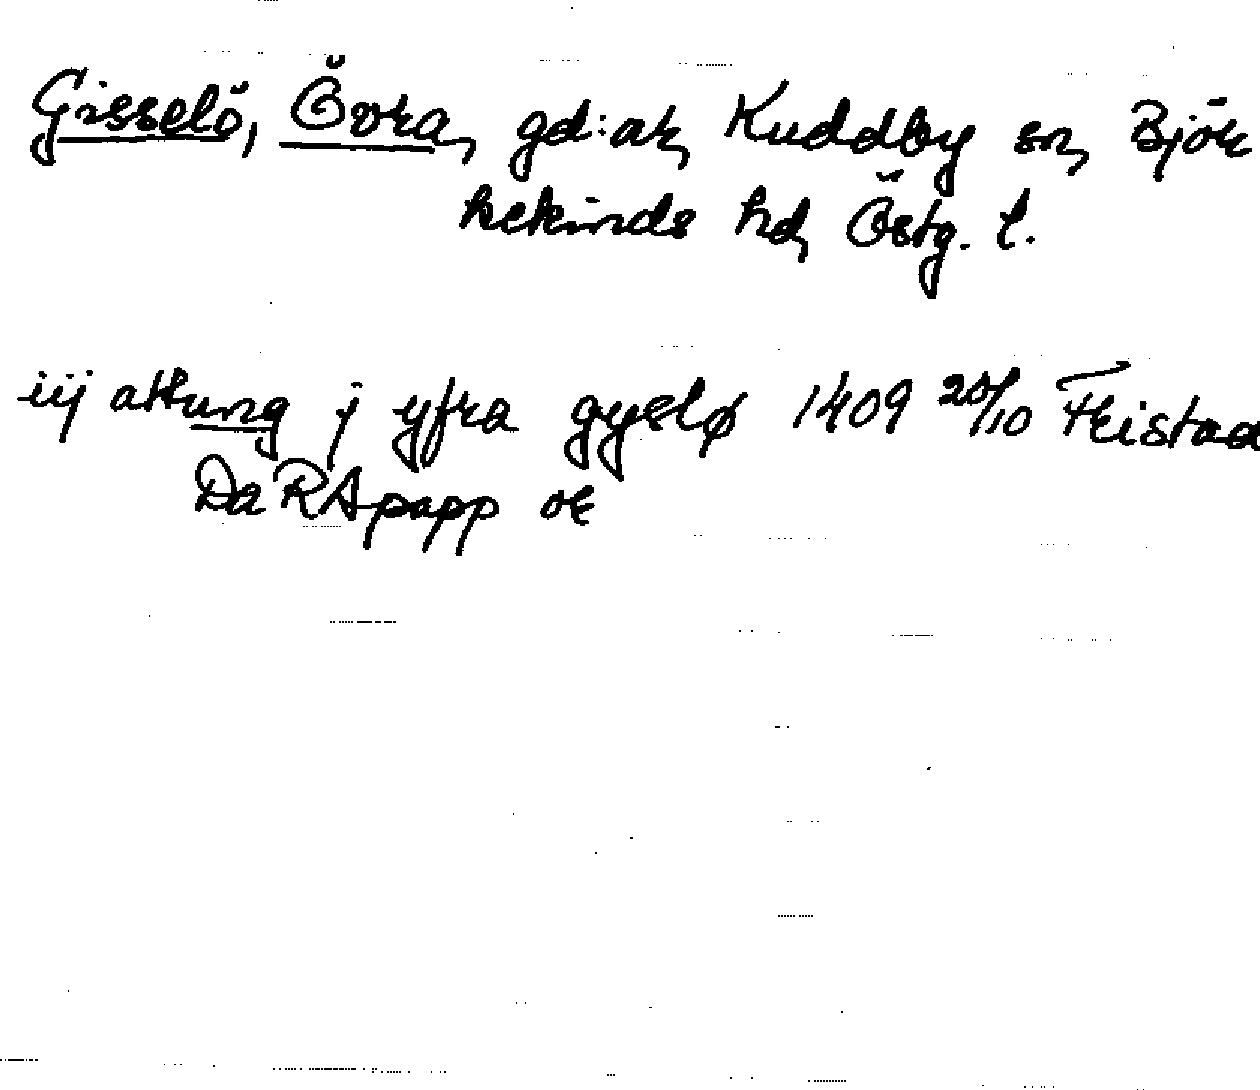 Gisselö, Övra, gd:ar, Kuddby sn, Björ
kekinds hd, Östg. l.
iij attung j yfra gyslø 1409 20/10 Fristad
Da RApapp or